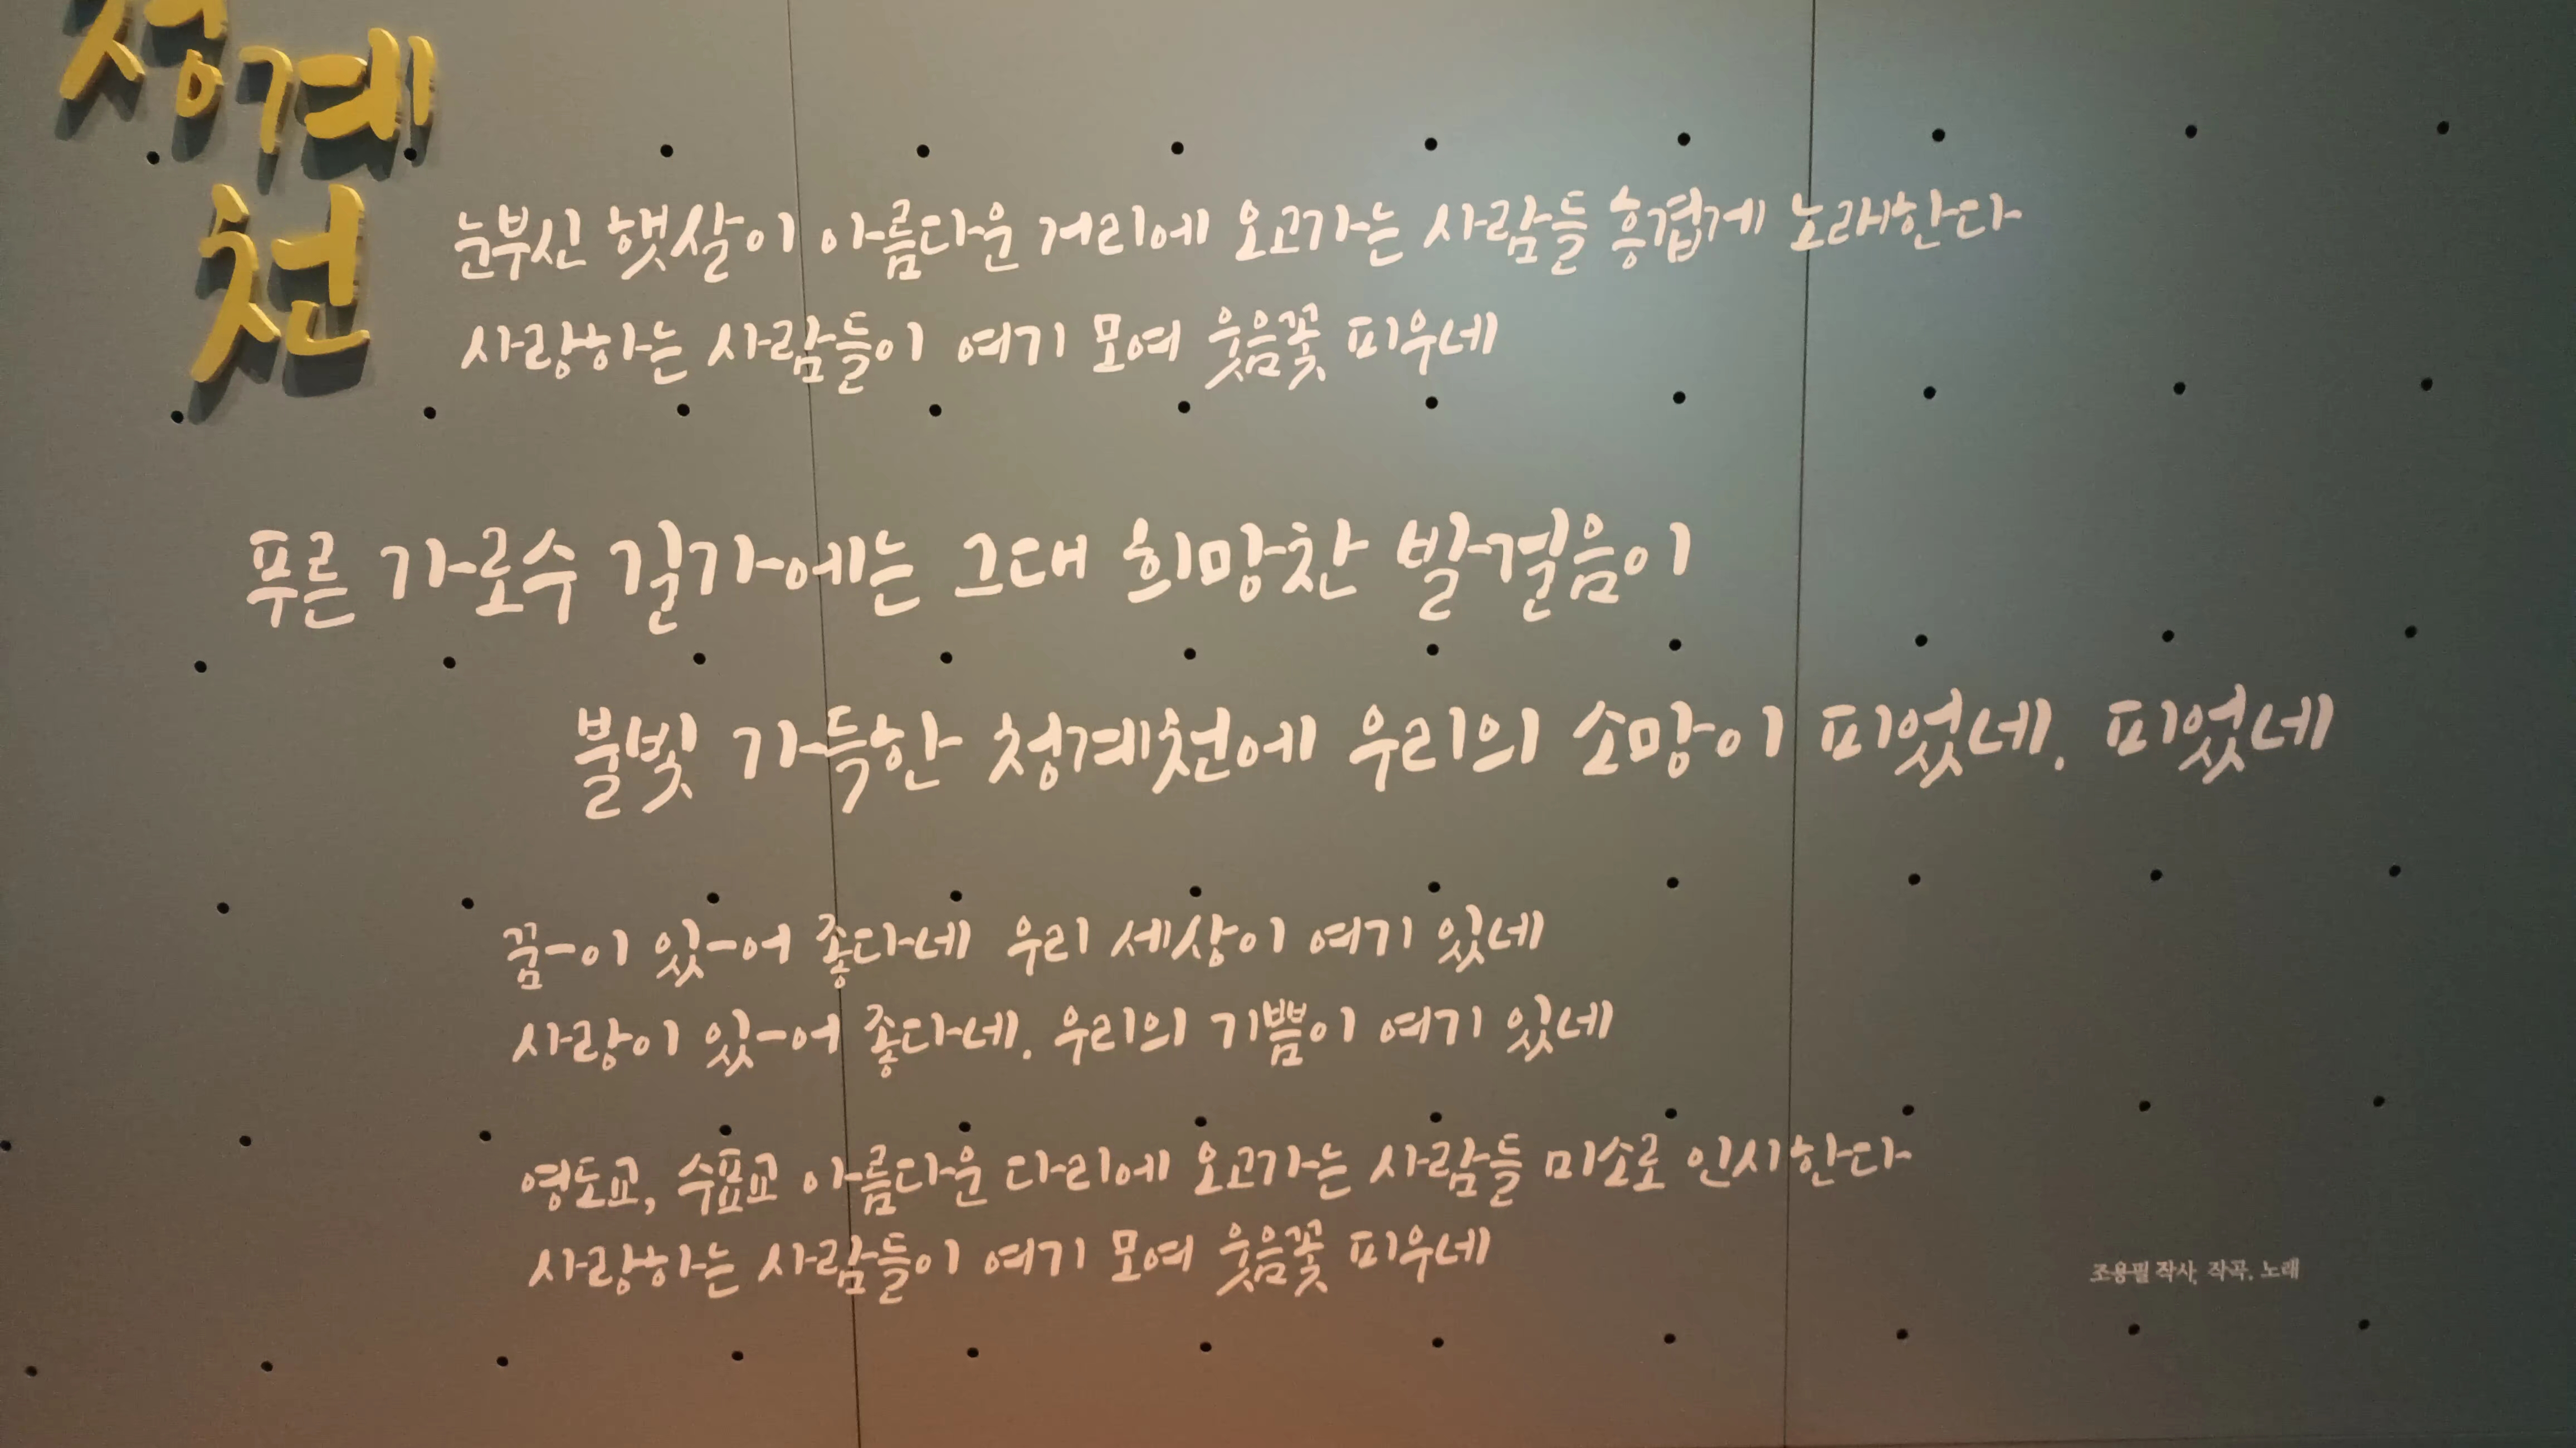 청계
천
눈부신 햇살이 아름다운 거리에 오고가는 사람들 흥겹게 노래한다
사랑하는 사람들이 여기 모여 웃음꽃 피우네
푸른 가로수 길가에는 그대 희망찬 발걸음이
불빛 가득한 청계천에 우리의 소망이 피었네. 피었네
꿈-이 있-어 좋다네 우리 세상이 여기 있네
사랑이 있-어 좋다네. 우리의 기쁨이 여기 있네
영도교, 수표교 아름다운 다리에 오고가는 사람들 미소로 인사한다
사랑하는 사람들이 여기 모여 웃음꽃 피우네
조용필 작사, 작곡, 노래